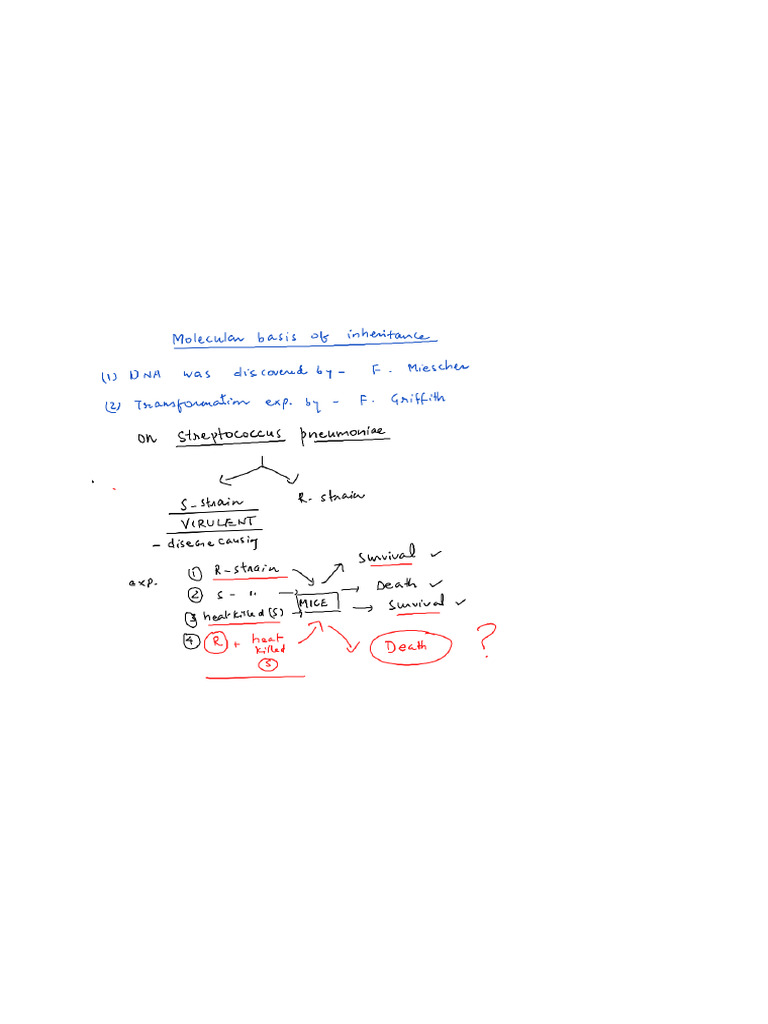 Molecular basis of inheritance
(1) DNA was discovered by - F. Miescher
(2) Transformation exp. by - F. Griffith
on Streptococcus pneumoniae
S-strain R-strain
VIRULENT
- disease causing
exp. ① R-strain Survival ✓
② S- " MICE Death ✓
③ heat killed (S) Survival ✓
④ R + heat killed S Death ?